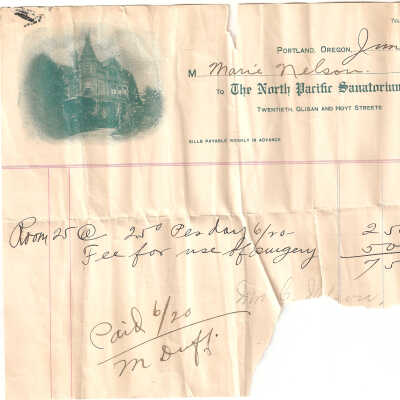 PORTLAND, OREGON, Jun
M Marie Nelson.
TO The North Pacific Sanatorium
TWENTIETH, GLISAN AND HOYT STREETS
BILLS PAYABLE WEEKLY IN ADVANCE
Room 25 @ 250 Per day 6/20- 2 50
Fee for use of surgery 5 0
7 5
Paid 6/20
M Duff